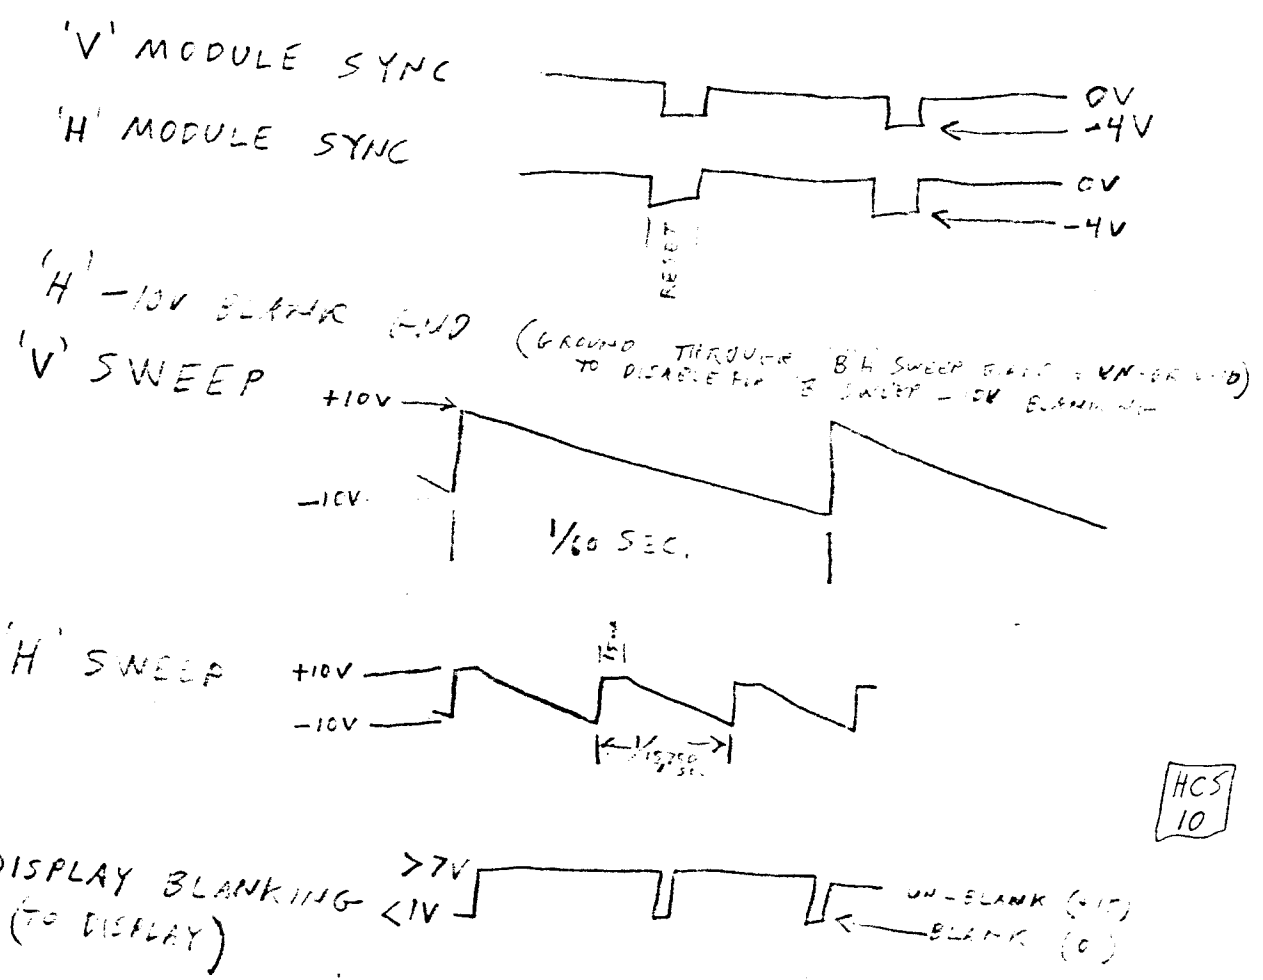 'V' MODULE SYNC
0V
-4V
'H' MODULE SYNC
0V
-4V
RESET
'H' -10V BLANK GND (GROUND THROUGH 'B' H SWEEP
TO DISABLE FOR 'B' SWEEP -10V BLANKING
'V' SWEEP
+10V
-10V
1/60 SEC.
'H' SWEEP
+10V
-10V
1/15,750
SEC.
HCS
10
DISPLAY BLANKING
(TO DISPLAY)
>7V
<1V
UN-BLANK
BLANK (0)